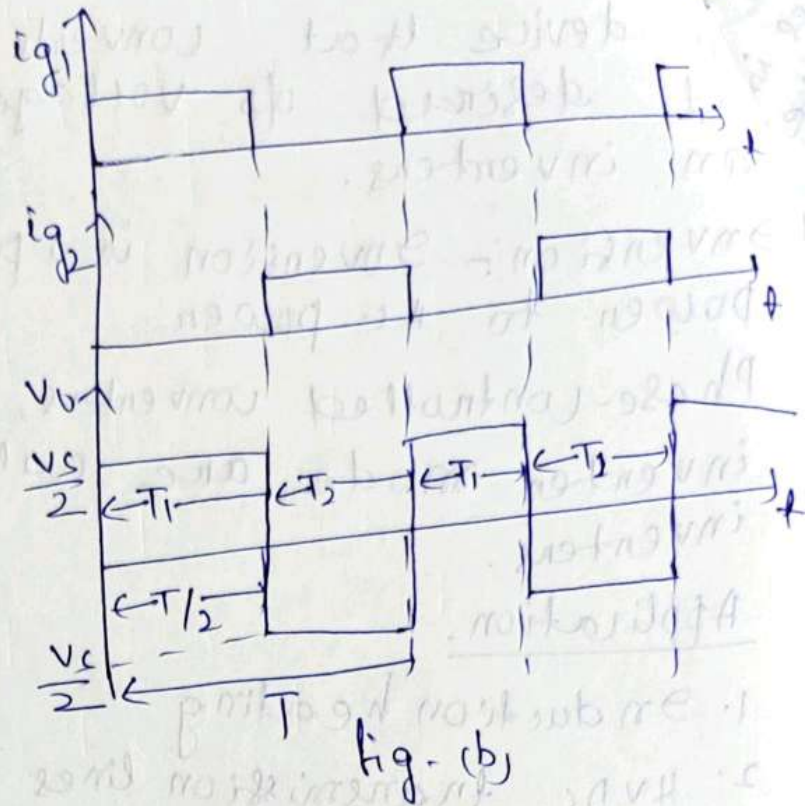 ig1
t
ig2
t
V0
Vs/2
T1 T2 T1 T2
t
T/2
Vs/2
T
fig. (b)